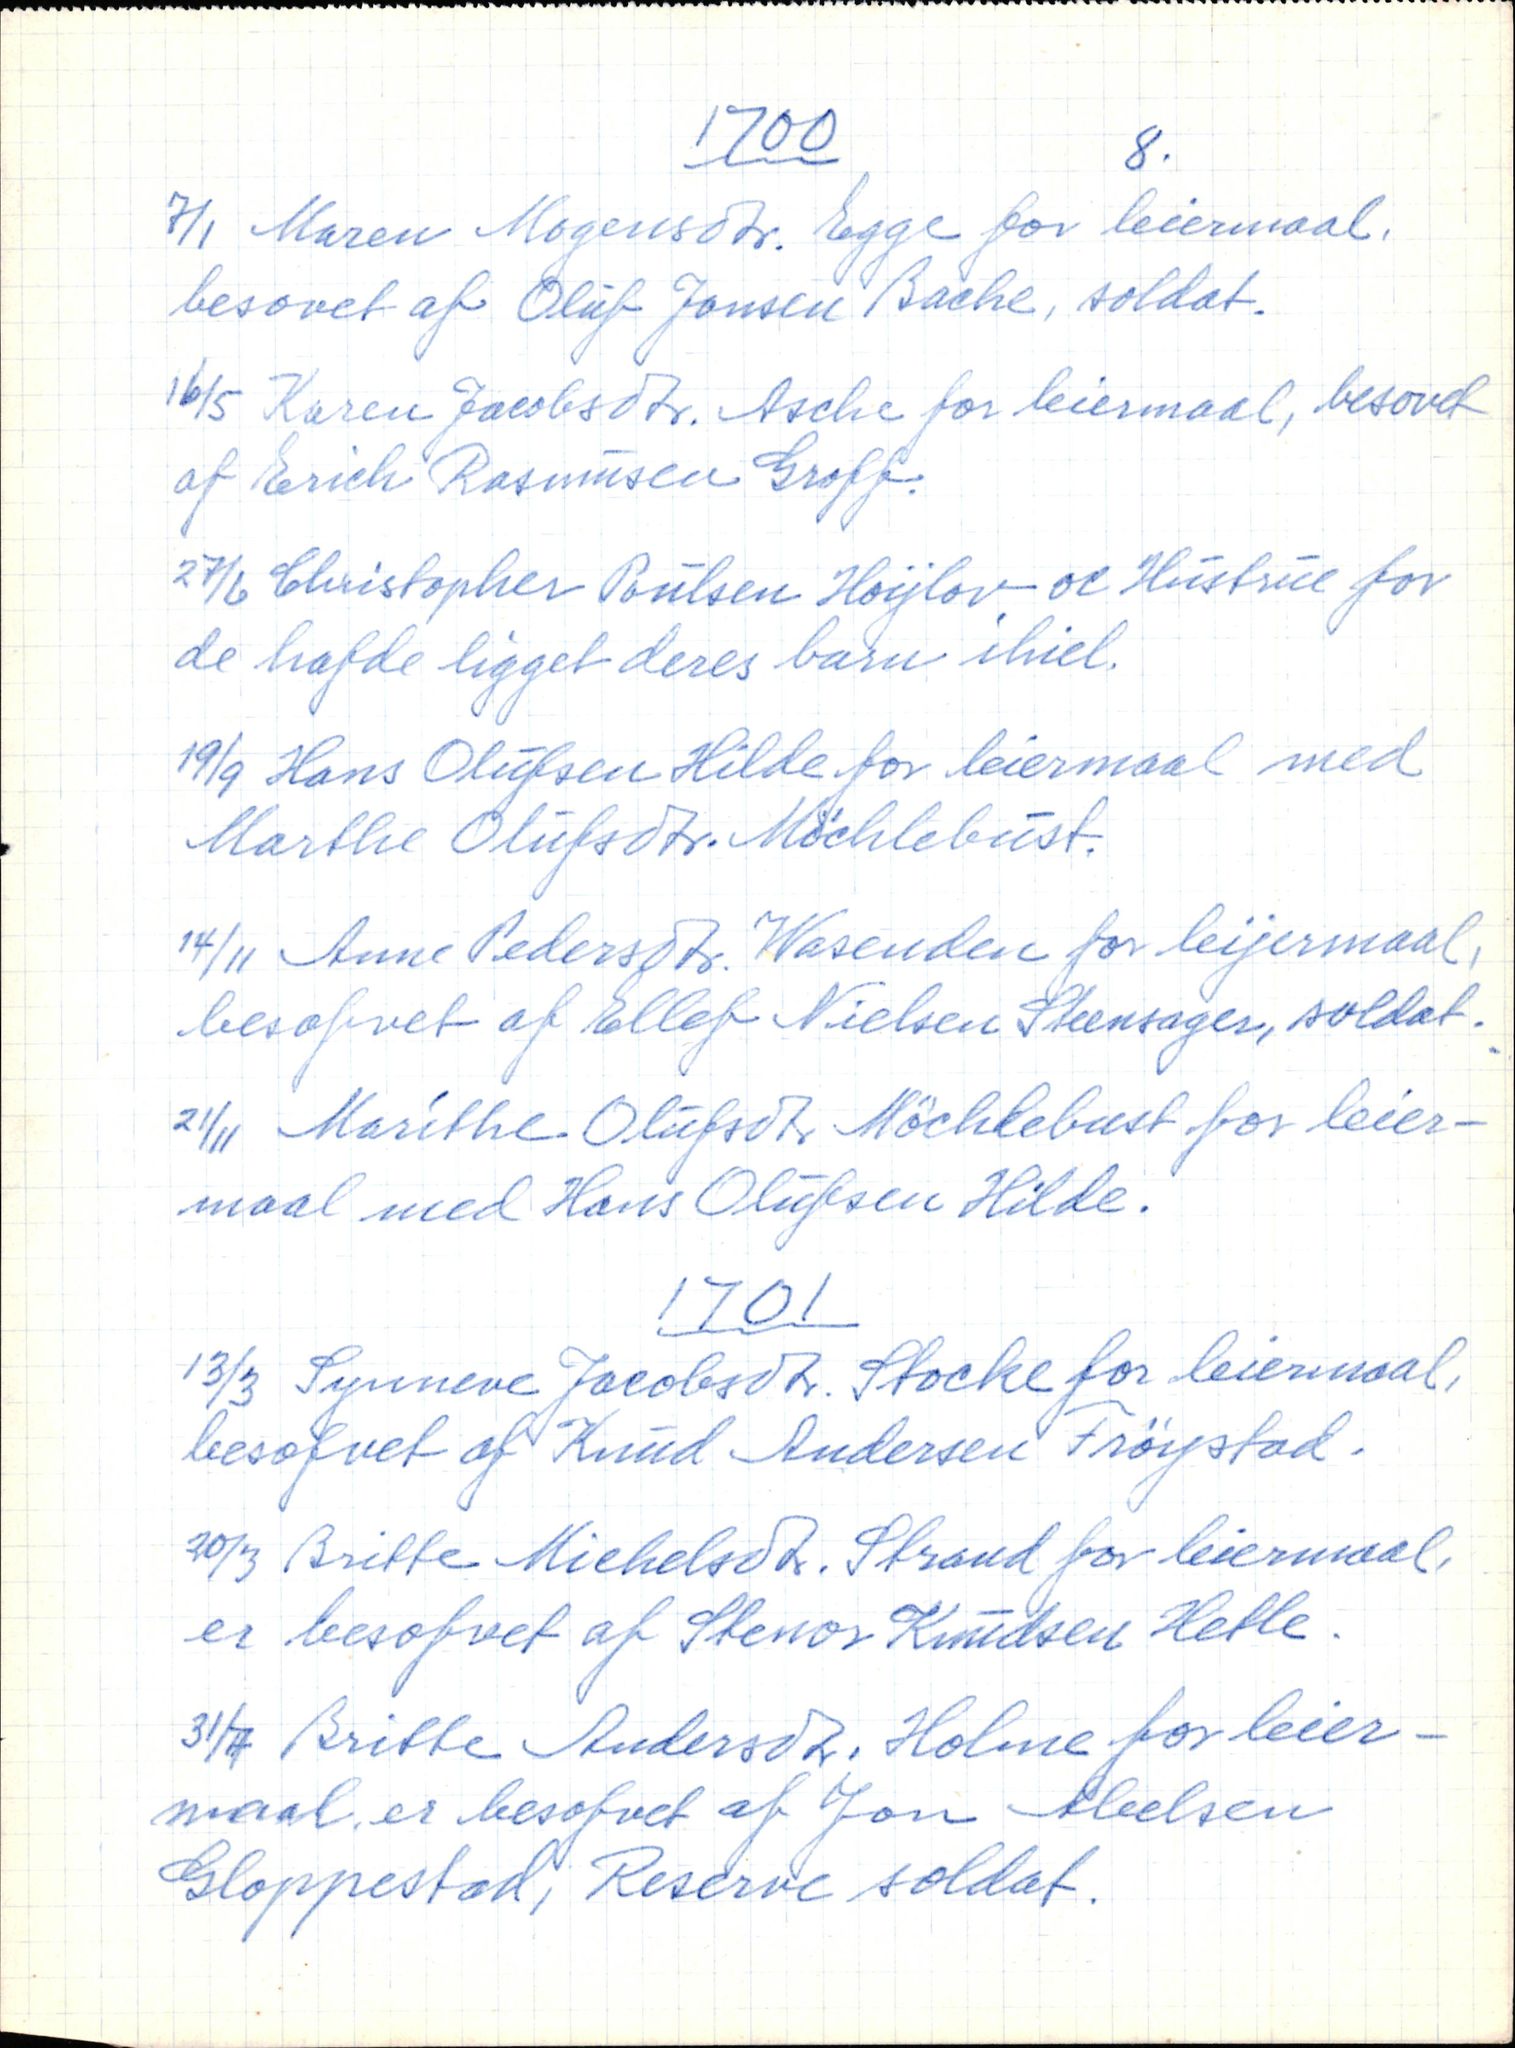 1700
8.
7/1 Maren Mogensdtr. Egge for leiermaal,
besovet af Oluf Jonsen Bache, soldat.
16/5 Karen Jacobsdtr. Asche for leiermaal, besovet
af Erich Rasmusen Groff.
27/6 Christopher Poulsen Höÿlov oc Hustrue for
de hafde ligget deres barn ihiel.
19/9 Hans Olufsen Hilde for leiermaal med
Marthe Olufsdtr. Möchlebust.
14/11 Anne Pedersdtr. Wasenden for leijermaal,
besofvet af Ellef Nielsen Steensager, soldat.
21/11 Marithe Olufsdtr Möchlebust for leier-
maal med Hans Olufsen Hilde.
1701
13/3 Synneve Jacobsdtr. Stocke for leiermaal,
besofvet af Knud Andersen Fröystad.
20/3 Britte Michelsdtr. Strand for leiermaal,
er besofvet af Stenor Knudsen Hetle.
Britte Andersdtr. Holme for leier-
maal, er besofvet af Jon Abelsen
Gloppestad, Reserve soldat.